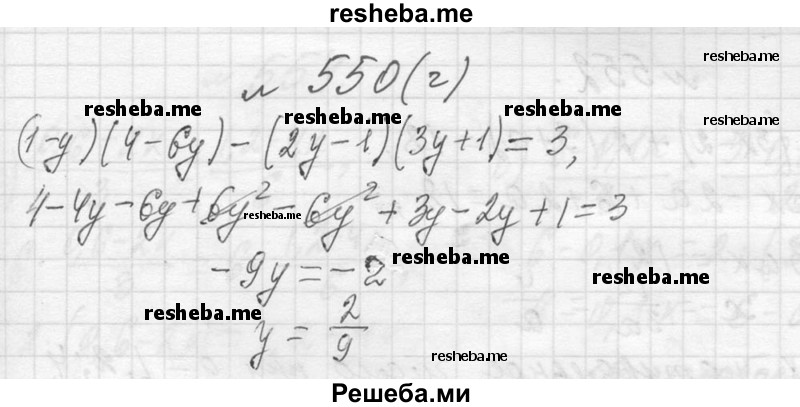 resheba.me
№ 550(г)
resheba.me
resheba.me
resheba.me
resheba.me
resheba.me
(1-y)(4-6y)-(2y-1)(3y+1)=3,
4-4y-6y+6y²-6y²+3y-2y+1=3
resheba.me
-9y=-2
resheba.me
resheba.me
resheba.me
y= 2/9
resheba.me
Решеба.ми